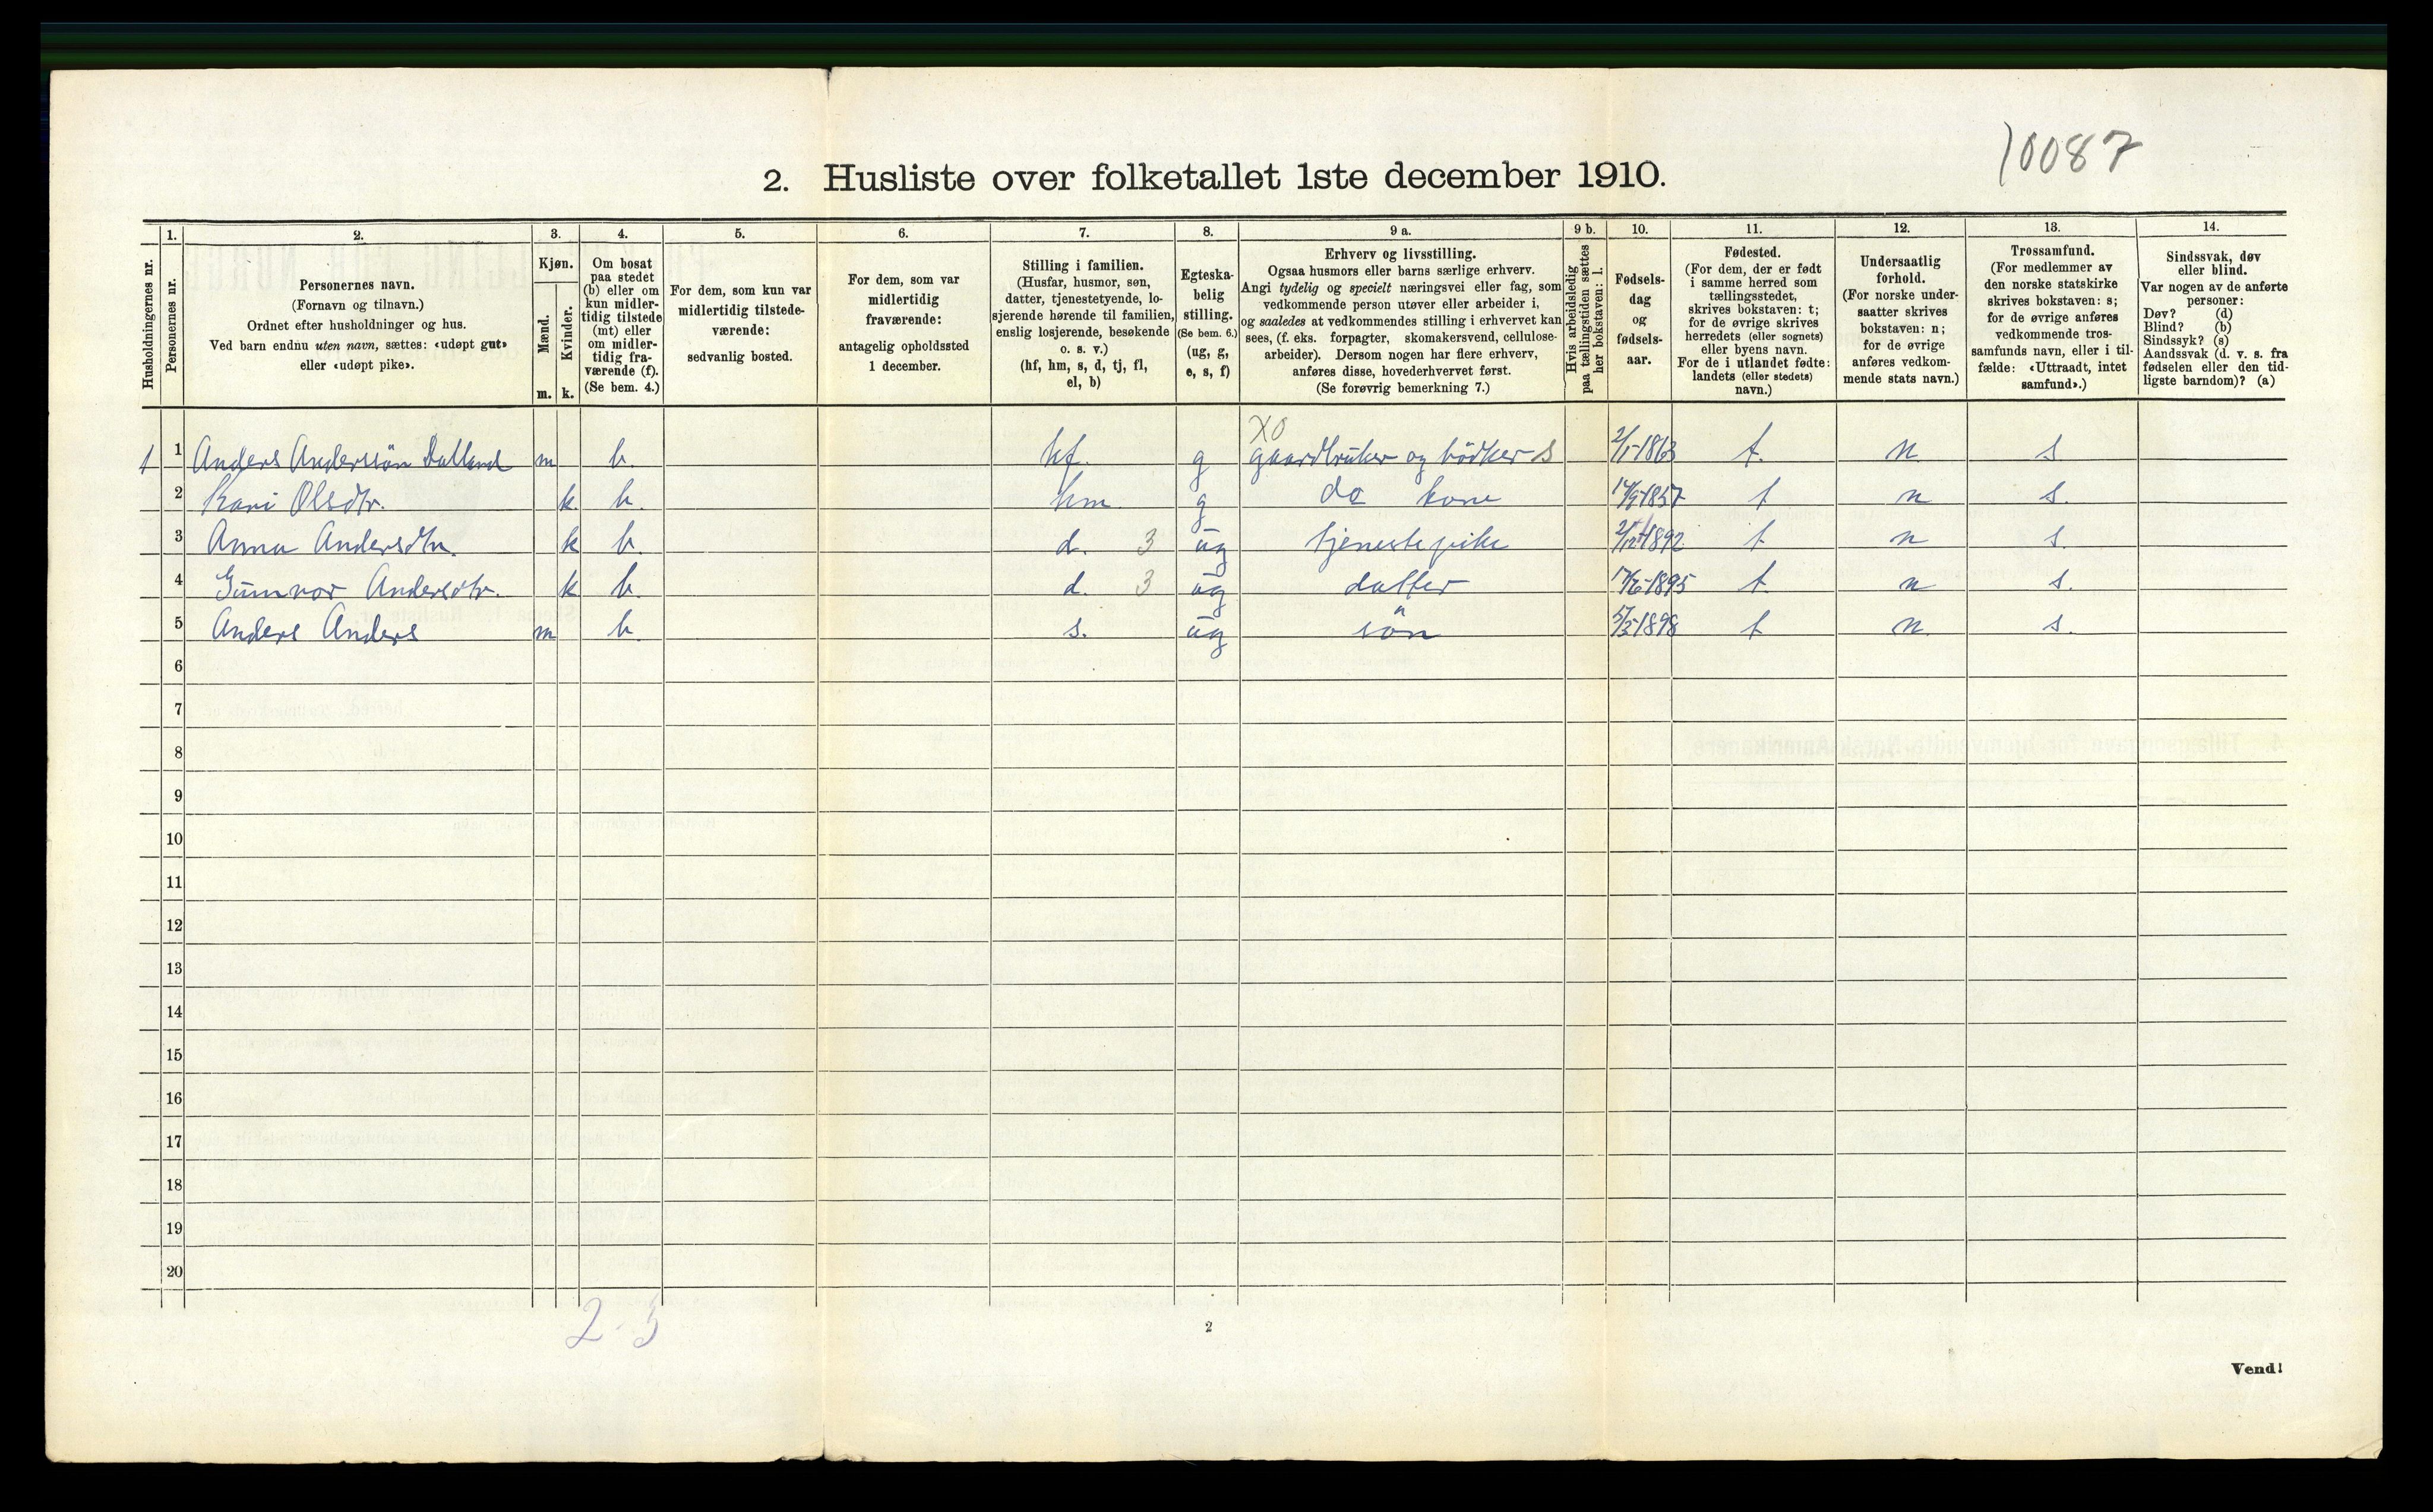 10087
2. Husliste over folketallet 1ste december 1910.
Husholdningernes nr.
1.
Personernes nr.
2.
Personernes navn.
(Fornavn og tilnavn.)
Ordnet efter husholdninger og hus.
Ved barn endnu uten navn, sættes: «udøpt gut»
eller «udøpt pike».
3.
Kjøn.
Mænd.
Kvinder.
m. k.
4.
Om bosat
paa stedet
(b) eller om
kun midler-
tidig tilstede
(mt) eller
om midler-
tidig fra-
værende (f).
(Se bem. 4.)
5.
For dem, som kun var
midlertidig tilstede-
værende:
sedvanlig bosted.
6.
For dem, som var
midlertidig
fraværende:
antagelig opholdssted
1 december.
7.
Stilling i familien.
(Husfar, husmor, søn,
datter, tjenestetyende, lo-
sjerende hørende til familien,
enslig losjerende, besøkende
o. s. v.)
(hf, hm, s, d, tj, fl,
el, b)
8.
Egteska-
belig
stilling.
(Se bem. 6.)
(ug, g,
e, s, f)
9 a.
Erhverv og livsstilling.
Ogsaa husmors eller barns særlige erhverv.
Angi tydelig og specielt næringsvei eller fag, som
vedkommende person utøver eller arbeider i,
og saaledes at vedkommendes stilling i erhvervet kan
sees, (f. eks. forpagter, skomakersvend, cellulose-
arbeider). Dersom nogen har flere erhverv,
anføres disse, hovederhvervet først.
(Se forøvrig bemerkning 7.)
9 b.
Hvis arbeidsledig
paa tællingstiden sættes
her bokstaven: l.
10.
Fødsels-
dag
og
fødsels-
aar.
11.
Fødested.
(For dem, der er født
i samme herred som
tællingsstedet,
skrives bokstaven: t;
for de øvrige skrives
herredets (eller sognets)
eller byens navn.
For de i utlandet fødte:
landets (eller stedets)
navn.)
12.
Undersaatlig
forhold.
(For norske under-
saatter skrives
bokstaven: n;
for de øvrige
anføres vedkom-
mende stats navn.)
13.
Trossamfund.
(For medlemmer av
den norske statskirke
skrives bokstaven: s;
for de øvrige anføres
vedkommende tros-
samfunds navn, eller i til-
fælde: «Uttraadt, intet
samfund».)
14.
Sindssvak, døv
eller blind.
Var nogen av de anførte
personer:
Døv? (d)
Blind? (b)
Sindssyk? (s)
Aandssvak (d. v. s. fra
fødselen eller den tid-
ligste barndom)? (a)
X0
1 1 Anders Anderssön Dalland m b. hf. g gaardbruker og bödker S 2/1-1863 t. n s
2 Kari Olsdtr. k. b. hm. g do kone 1857 t n s.
3 Anna Andersdtr. k b. d. 3 ug tjenestepike 2/12-1892 t n s.
4 Gunvor Andersdtr. k b. d. 3 ug datter 17/6-1895 t. n s.
5 Anders Anders m b. s. ug sön 5/5-1898 t n. s.
6
7
8
9
10
11
12
13
14
15
16
17
18
19
20
2-5
2
Vend!